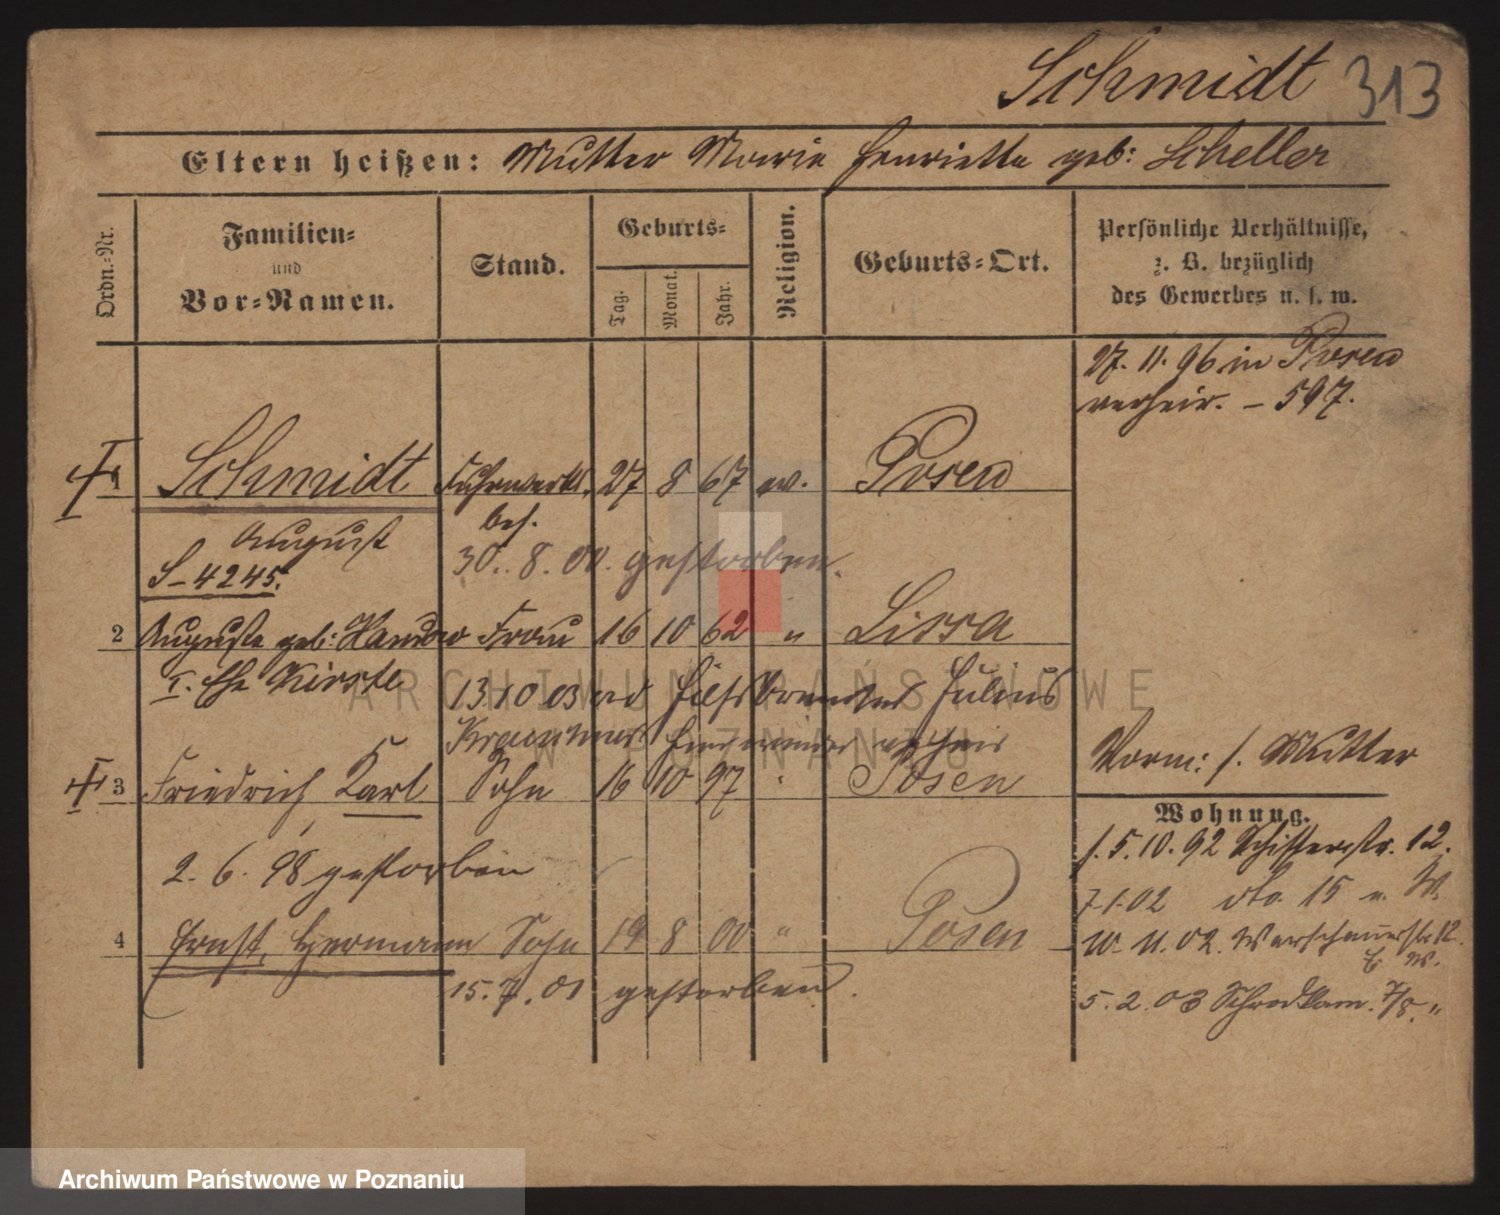 Schmidt 313
Eltern heißen: Mutter Marie Henriette geb: Scheller
Ordn.-Nr.
Familien-
und
Vor-Namen.
Stand.
Geburts-
Tag.
Monat.
Jahr.
Religion.
Geburts-Ort.
Persönliche Verhältnisse,
z. B. bezüglich
des Gewerbes u. s. w.
27. 11. 96 in Posen
verheir. – 597.
1 Schmidt Fuhrwerks 27 8 67 ev. Posen
bes.
August 30. 8. 00. gestorben.
S–4245.
2 Auguste geb: Handow Frau 16 10 62 " Lissa
I. Ehe Kirste 13.10.03 Julius
3 Friedrich Karl Sohn 16 10 97 " Posen
Vorm: s. Mutter
2. 6. 98 gestorben
4 Ernst, Hermann Sohn 19 8 00 " Posen
15. 7. 01 gestorben.
Wohnung.
5.10.92 12.
7.1.02 dto. 15 W.
11.02. Warschauerstr. 12
5. 2. 03 7/8. "
ARCHIWUM PAŃSTWOWE
W POZNANIU
Archiwum Państwowe w Poznaniu